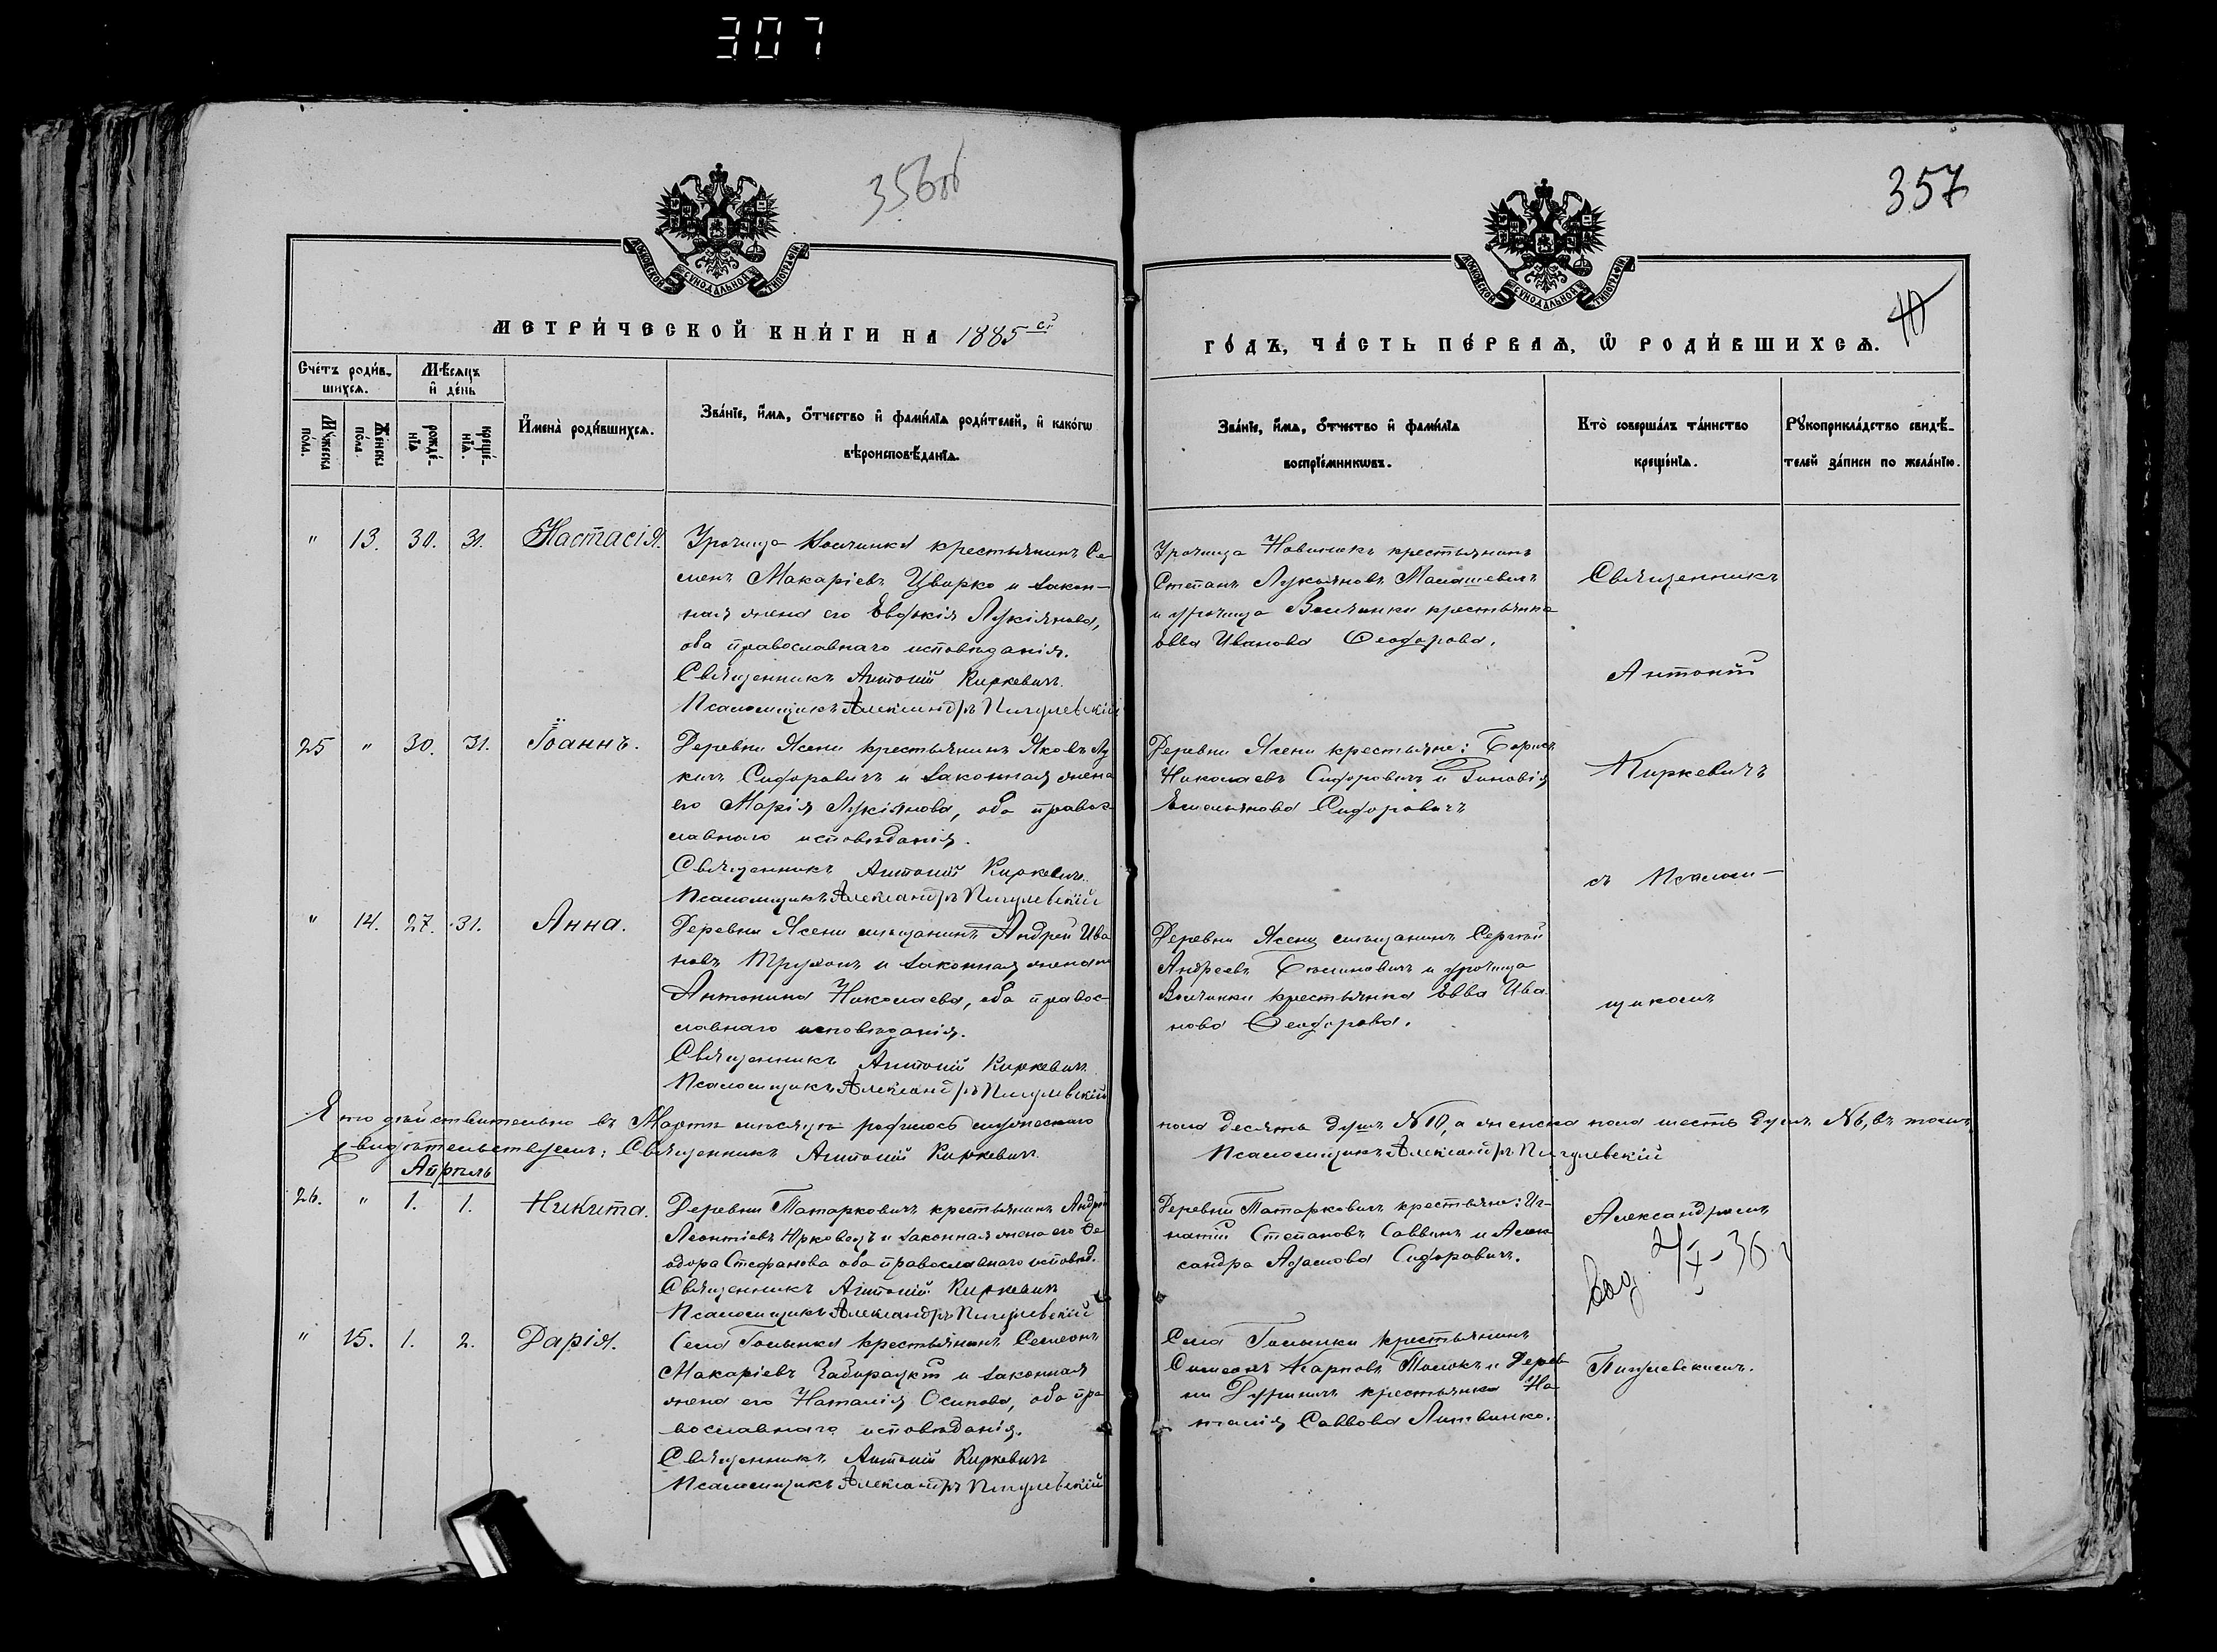 307
356об
357
МОСКОВСКОЙ СѴНОДАЛЬНОЙ ТИПОГРАФІИ
МОСКОВСКОЙ СѴНОДАЛЬНОЙ ТИПОГРАФІИ
МЕТРИ́ЧЕСКОЙ КНИ́ГИ НА 1885й
ГО́ДЪ, ЧА́СТЬ ПЕ́РВАѦ, Ѡ҆ РОДИ́ВШИХСѦ.
Сче́тъ роди́в-
шихсѧ.
Мѣ́сѧцъ
и҆ де́нь
Мꙋ́жеска
по́ла.
Же́нска
по́ла
рожде́-
нїѧ
креще́-
нїѧ.
И҆мена̀ роди́вшихсѧ.
Зва́нїе, и҆́мѧ, ѻ҆́тчество и҆ фами́лїѧ роди́телей, и҆ како́гѡ
вѣроисповѣ́данїѧ.
Зва́нїе, и҆́мѧ, ѻ҆́тчество и҆ фами́лїѧ
воспрїе́мникѡвъ.
Кто̀ соверша́лъ та́инство
креще́нїѧ.
Рꙋкоприкла́дство свидѣ́-
телей за́писи по жела́нїю.
" 13. 30. 31. Настасія.
Урочища крестьянинъ Се-
менъ Макаріевъ Цвирко и закон-
ная жена его Евдокія Лукіянова,
оба православнаго исповѣданія.
Священникъ Антоній Киркевичъ.
Псаломщикъ Александръ Пигулевскій
Урочища крестьянинъ
Степанъ Лукьяновъ
и урочища Волчинки крестьянка
Евва Иванова Ѳеодорова.
Священникъ
Антоній
25 " 30. 31. Іоаннъ.
Деревни Ясени крестьянинъ Яковъ Лу-
кичъ Сидоровичъ и законная жена
его Марія Лукіянова, обо правос-
славнаго исповѣданія.
Священникъ Антоній Киркевичъ.
Псаломщикъ Александръ Пигулевскій
Деревни Ясени крестьяне: Борисъ
Николаевъ Сидоровичъ и Зиновія
Емельянова Сидоровичъ
Киркевичъ
съ Псалом-
" 14. 27. 31. Анна.
Деревни Ясени мѣщанинъ Андрей Ива
новъ и законная жена
Антонина Николаева, оба правос-
славнаго исповѣданія.
Священникъ Антоній Киркевичъ.
Псаломщикъ Александръ Пигулевскій
Деревни Ясени мѣщанинъ Сергѣй
Андреевъ и урочища
Волчинки крестьянка Евва Ива
нова Ѳеодорова.
щикомъ
что дѣйствительно въ Мартѣ мѣсяцѣ родилось мужескаго
пола десять душъ N10, а женска пола шесть душъ N6, въ томъ
свидѣтельствуемъ: Священникъ Антоній Киркевичъ.
Псаломщикъ Александръ Пигулевскій
Апрѣль
26. " 1. 1. Никита.
Деревни Татарковичъ крестьянинъ Андрей
Леонтіевъ Юрковецъ и законная жена его Ѳе
одора Стефанова оба православнаго исповѣд.
Священникъ Антоній Киркевичъ
Псаломщикъ Александръ Пигулевскій
Деревни Татарковичъ крестьяне: Иг-
натій Степановъ Саввичъ и Алек
сандра Адамова Сидоровичъ.
Александромъ
" 15. 1. 2. Дарія.
Села Голынка крестьянинъ Семеонъ
Макаріевъ и законная
жена его Наталія Осипова, оба пра
вославнаго исповѣданія.
Священникъ Антоній Киркевичъ
Псаломщикъ Александръ Пигулевскій
Села Голынки крестьянинъ
Симеонъ Карповъ и Дерев-
ни крестьянка На-
талія Саввова Литвинко.
Пигулевскимъ.